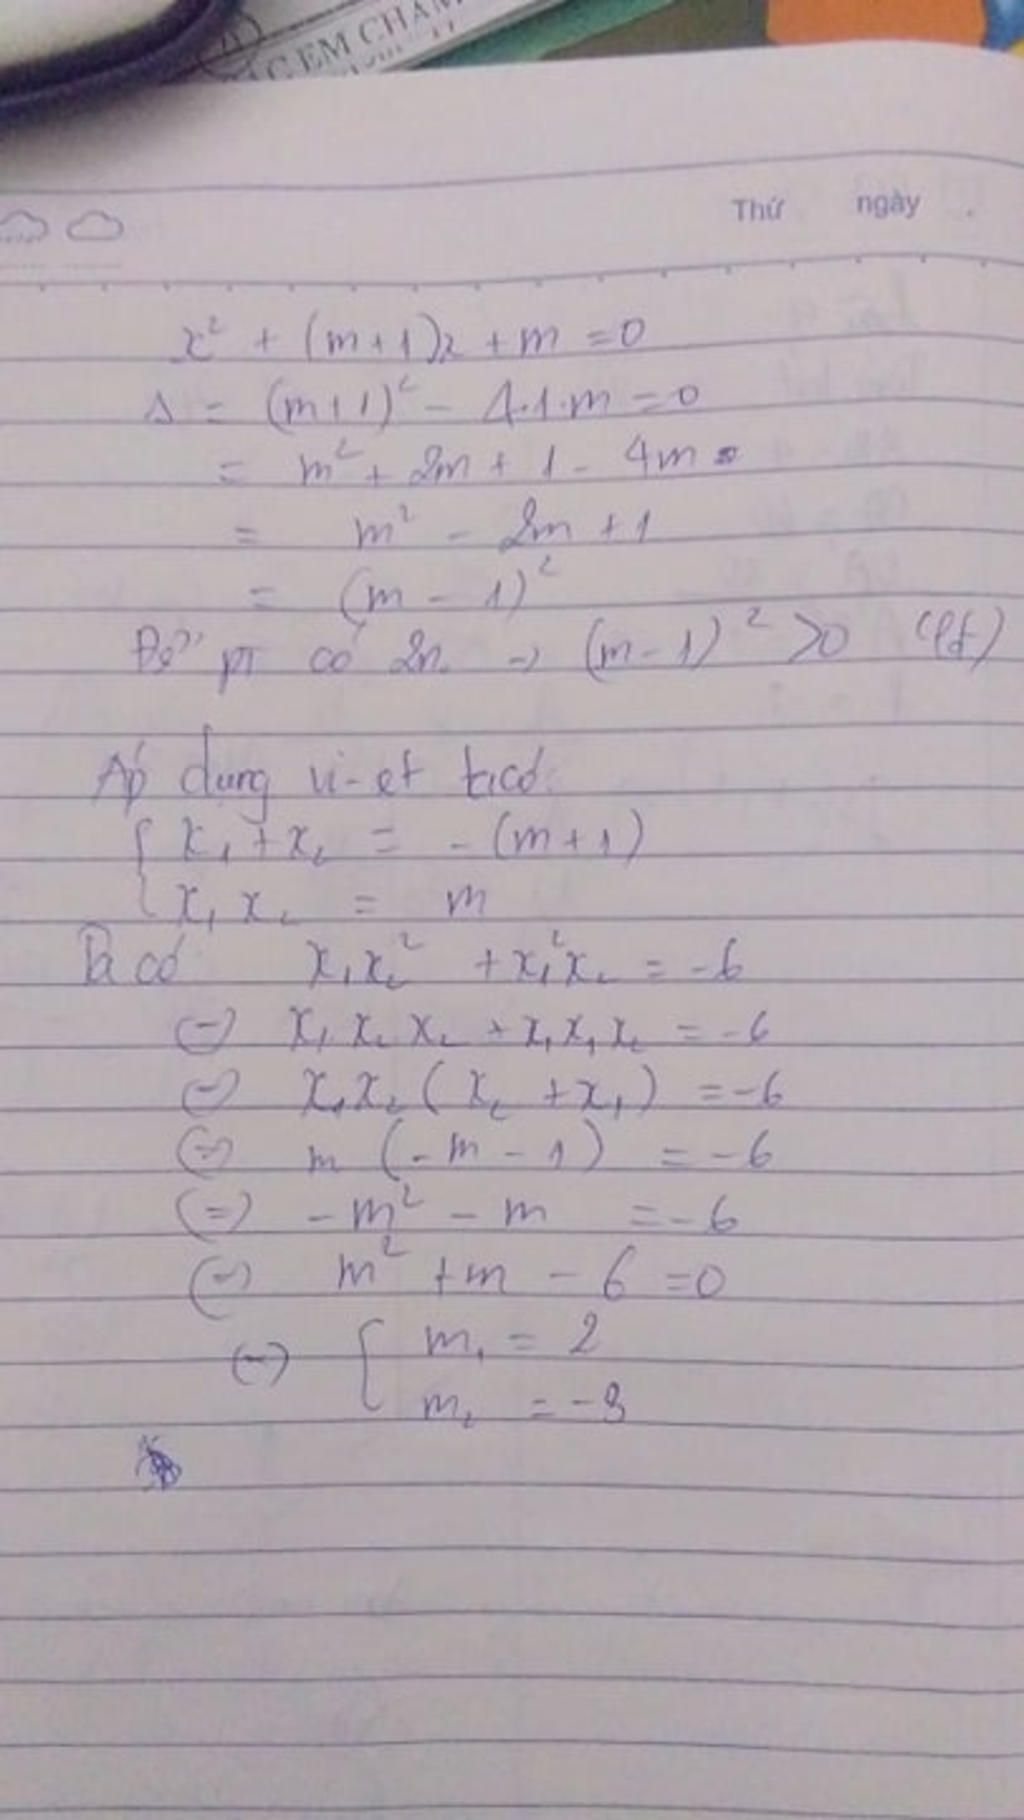 C EM CHĂM
Thứ ngày
x² + (m+1)x + m = 0
Δ = (m+1)² - 4.1.m = 0
= m² + 2m + 1 - 4m
= m² - 2m + 1
= (m - 1)²
Để pt có 2n → (m-1)² >0 (lđ)
Áp dụng vi-et ta có:
{ x₁ + x₂ = -(m+1)
x₁ x₂ = m
Ta có x₁x₂² + x₁²x₂ = -6
(=) x₁ x₂ x₂ + x₁ x₁ x₂ = -6
(=) x₁x₂ ( x₂ + x₁ ) = -6
(=) m (-m - 1) = -6
(=) -m² - m = -6
(=) m² + m - 6 = 0
(=) { m₁ = 2
m₂ = -3